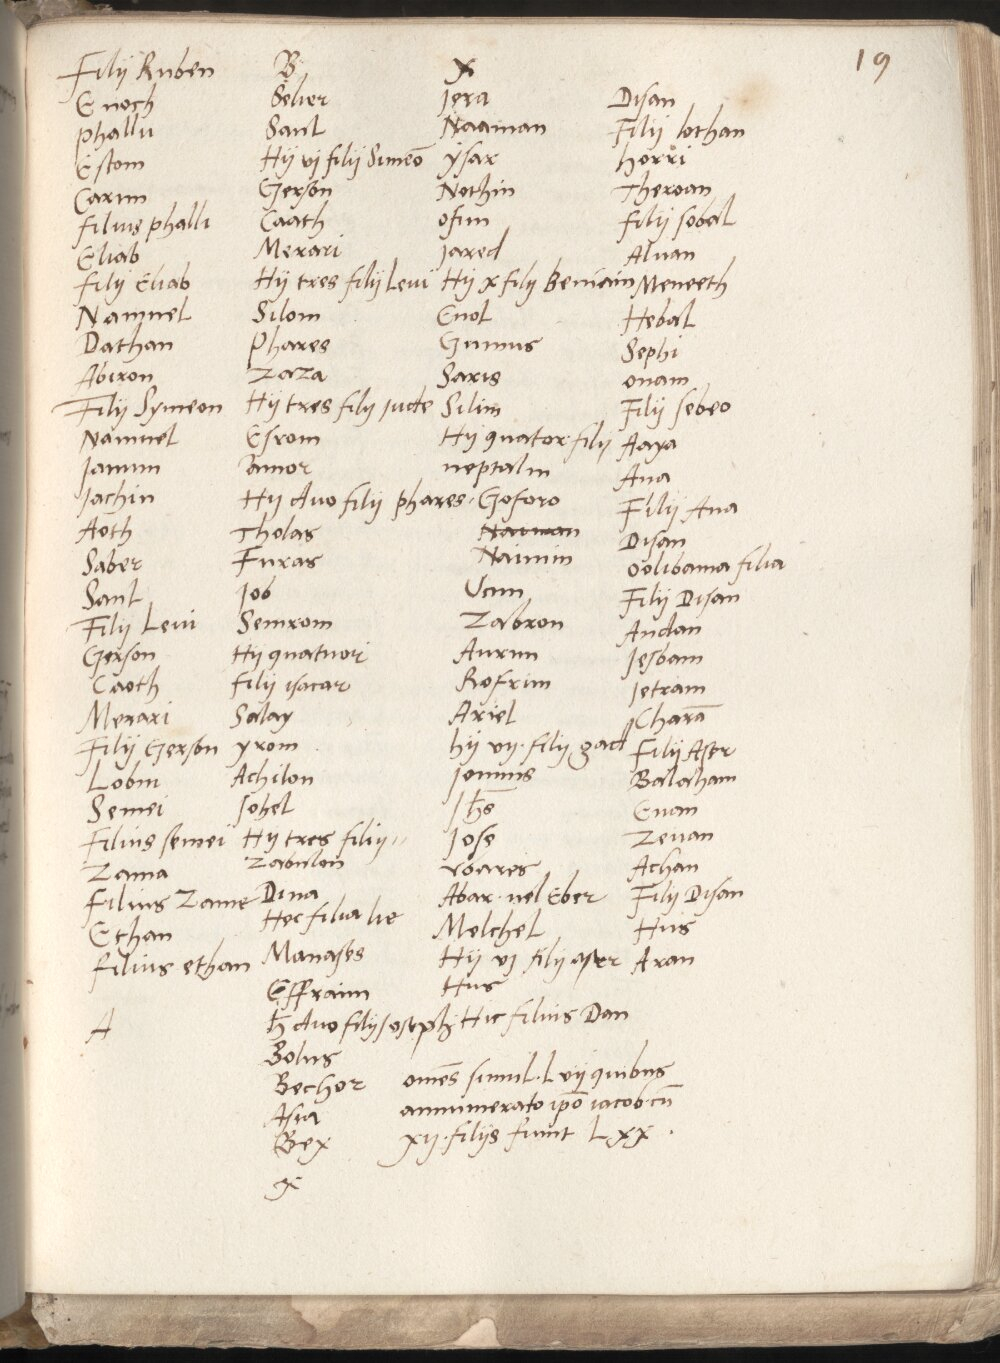 19
Filij Ruben
Enoch
phallu
Estom
Carim
filius phalli
Eliab
filij Eliab
Namuel
Dathan
Abiron
Filij Symeon
Namuel
Jamim
Jachin
Aoth
Saber
Saul
Filij Levi
Gerson
Caoth
Merari
Filij Gerson
Lobin
Semei
Filius semei
Zama
Filius Zame
Ethan
filius ethan
A
B
Seher
Saul
Hij vj filij Simeō
Gerson
Caath
Merari
Hij tres filij Levi
Silom
Phares
ZaZa
Hij tres filij iude
Esrom
amor
Hij duo filij phares.
Tholas
Furas
Job
Semrom
Hij quatuor
filij isacar
Salay
yrom
Achilon
Johel
Hij tres filij
Zabulon
Dina
Hec filia lie
Manases
Effraim
h̄ duo filij joseph
Bolus
Bechor
Asia
Bex
x
X
Jera
Naaman
ysar
Nothin
ofim
Jared
Hij x filij Beniain
Enol
Gumus
Saris
Silim
Hij quator filij
neptalin
Goforo
Naiman
Naimim
Ucim
Zabron
Aurim
Rofrim
Ariel
hij vij. filij gad
Jomius
Jh̄s
Jose
voares
Abar. vel Eber
Melchel
Hij vj filij aser
Hus
Hic filius Dan
omēs simul. L vij quibus
annumerato ipō iacob. cū
xij. filijs fiunt Lxx.
Disan
Filij lothan
horri
Theroan
filij sobal
Aluan
Meneeth
Hebal
Sephi
onam
Filij sebeo
Aaya
Ana
Filij Ana
Disan
oolibama filia
Filij Disan
Andan
Jesbam
Jetram
Charā
Filij Aser
Balaham
Euan
Zeuan
Achan
Filij Disan
Hus
Aran